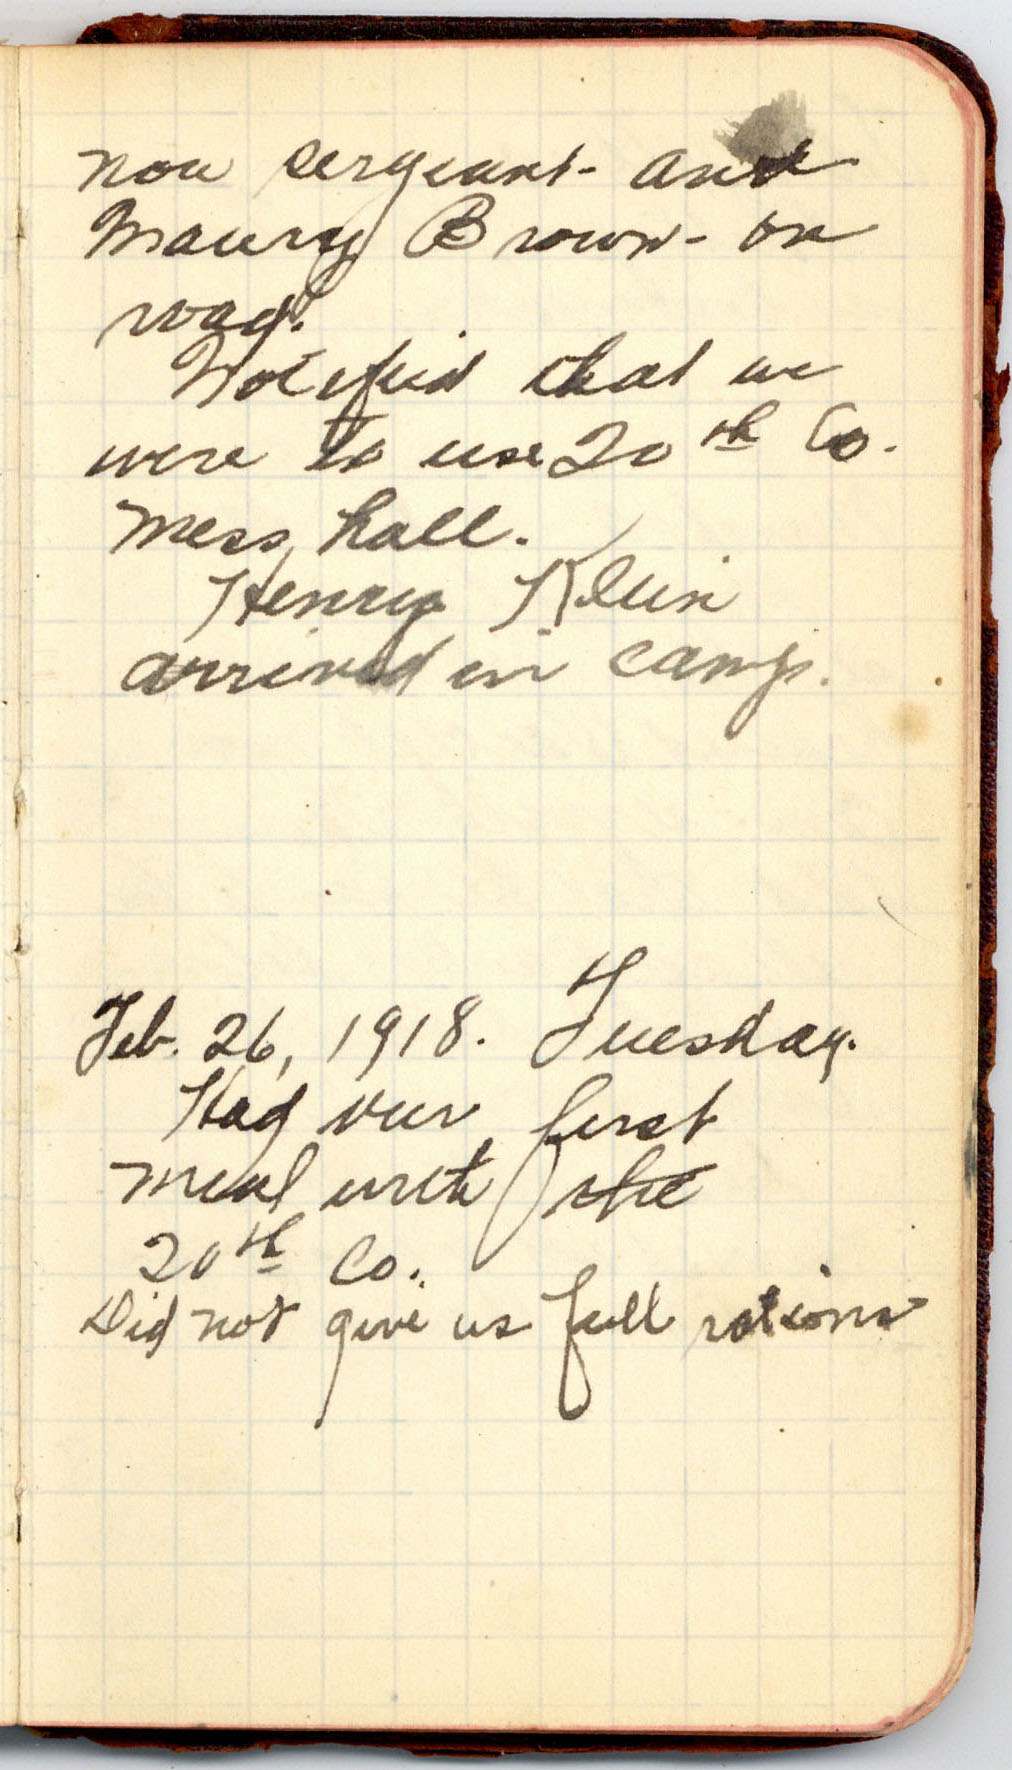 now sergeant - and
Maury Brown - on
road.
Notified that we
were to use 20th Co.
mess hall.
Henry Klein
arrived in camp.
Feb. 26, 1918. Tuesday.
Had our first
meal with the
20th Co.
Did not give us full rations